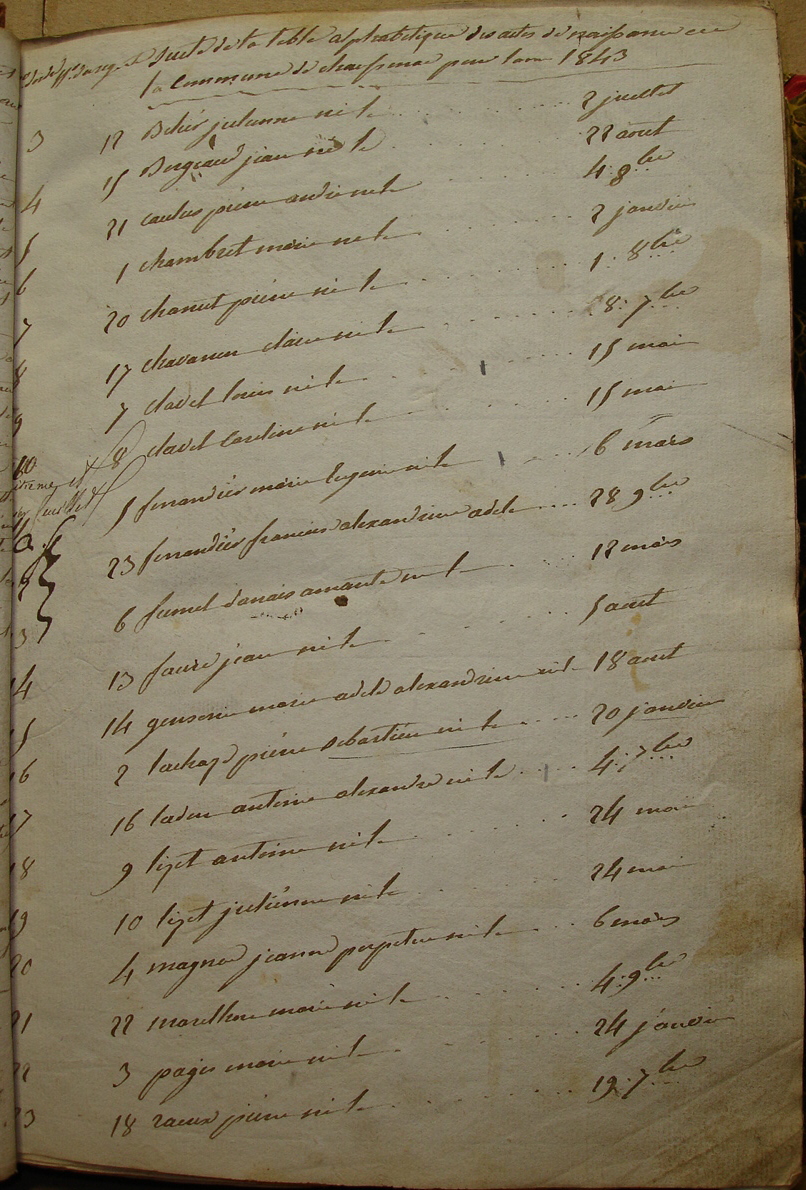 Suite de la table alphabetique des actes de naissance de
la Commune de pour l'an 1843
3 12 julienne né le 2 juillet
4 15 Bergeaud jean né le 22 aout
5 21 caulus pierre andré né le 4 8bre
6 1 chambret marie né le 2 janvier
7 20 chanut pierre né le 1. 8bre
8 17 chavanon claire né le 8. 7bre
9 7 clavel louis né le 15 mai
10 8 clavel Caroline né le 15 mai
5 ferrandier marie eugenie né le 6 mars
23 ferrandier francois alexandrine adele 28 9bre
6 fumel anais amante né le 12 mars
3 13 faure jean né le 5 aout
14 14 marie adele alexandrine né le 18 aout
15 2 pierre sebastien né le 20 janvier
16 16 antoine alexandre né le 4. 7bre
17 9 lizet antoine né le 24 mai
18 10 lizet julienne né le 24 mai
19 4 magne jeanne perpetue né le 6 mars
20 22 marie né le 4. 9bre
21 3 pages marie né le 24 janvier
22 18 pierre né le 19. 7bre
23